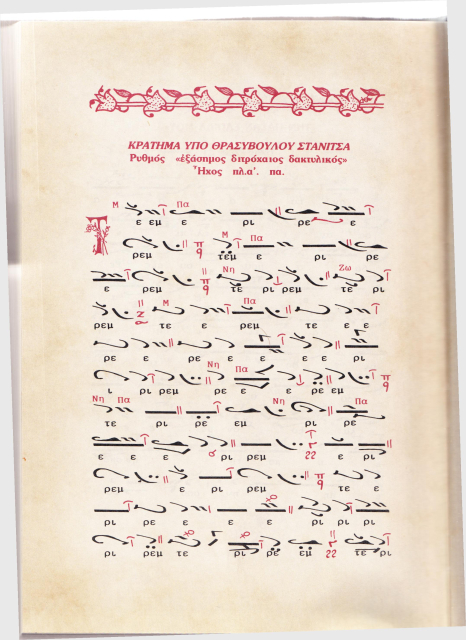 ΚΡΑΤΗΜΑ ΥΠΟ ΘΡΑΣΥΒΟΥΛΟΥ ΣΤΑΝΙΤΣΑ
Ρυθμός «ἑξάσημος διτρόχαιος δακτυλικός»
Ἦχος πλ.α΄. πα.
Μ Πα
Τ ε εμ ε ρι ρε ε
Μ Πα
ρεμ τεμ ε ρι ε
Νη Ζω
ε ρεμ τε ρι ρεμ τε ρι
Μ Πα
ρεμ τε ε ρεμ τε ε ε
ρε ε ρε ε ε ε ε ρι
Νη Πα
ι ρι ρεμ ρι ε ε ρε ρεμ
Νη Πα Νη Πα
τε ρι ρε εμ ε ρι ρε
ε ε ε ρι ρεμ ε ρι
ρεμ ε ρι ρεμ τε ε
ρι ρε ρε ε ε ρι ρι ρι
ρι ρεμ τε ε ρι ρε εμ τε ρι